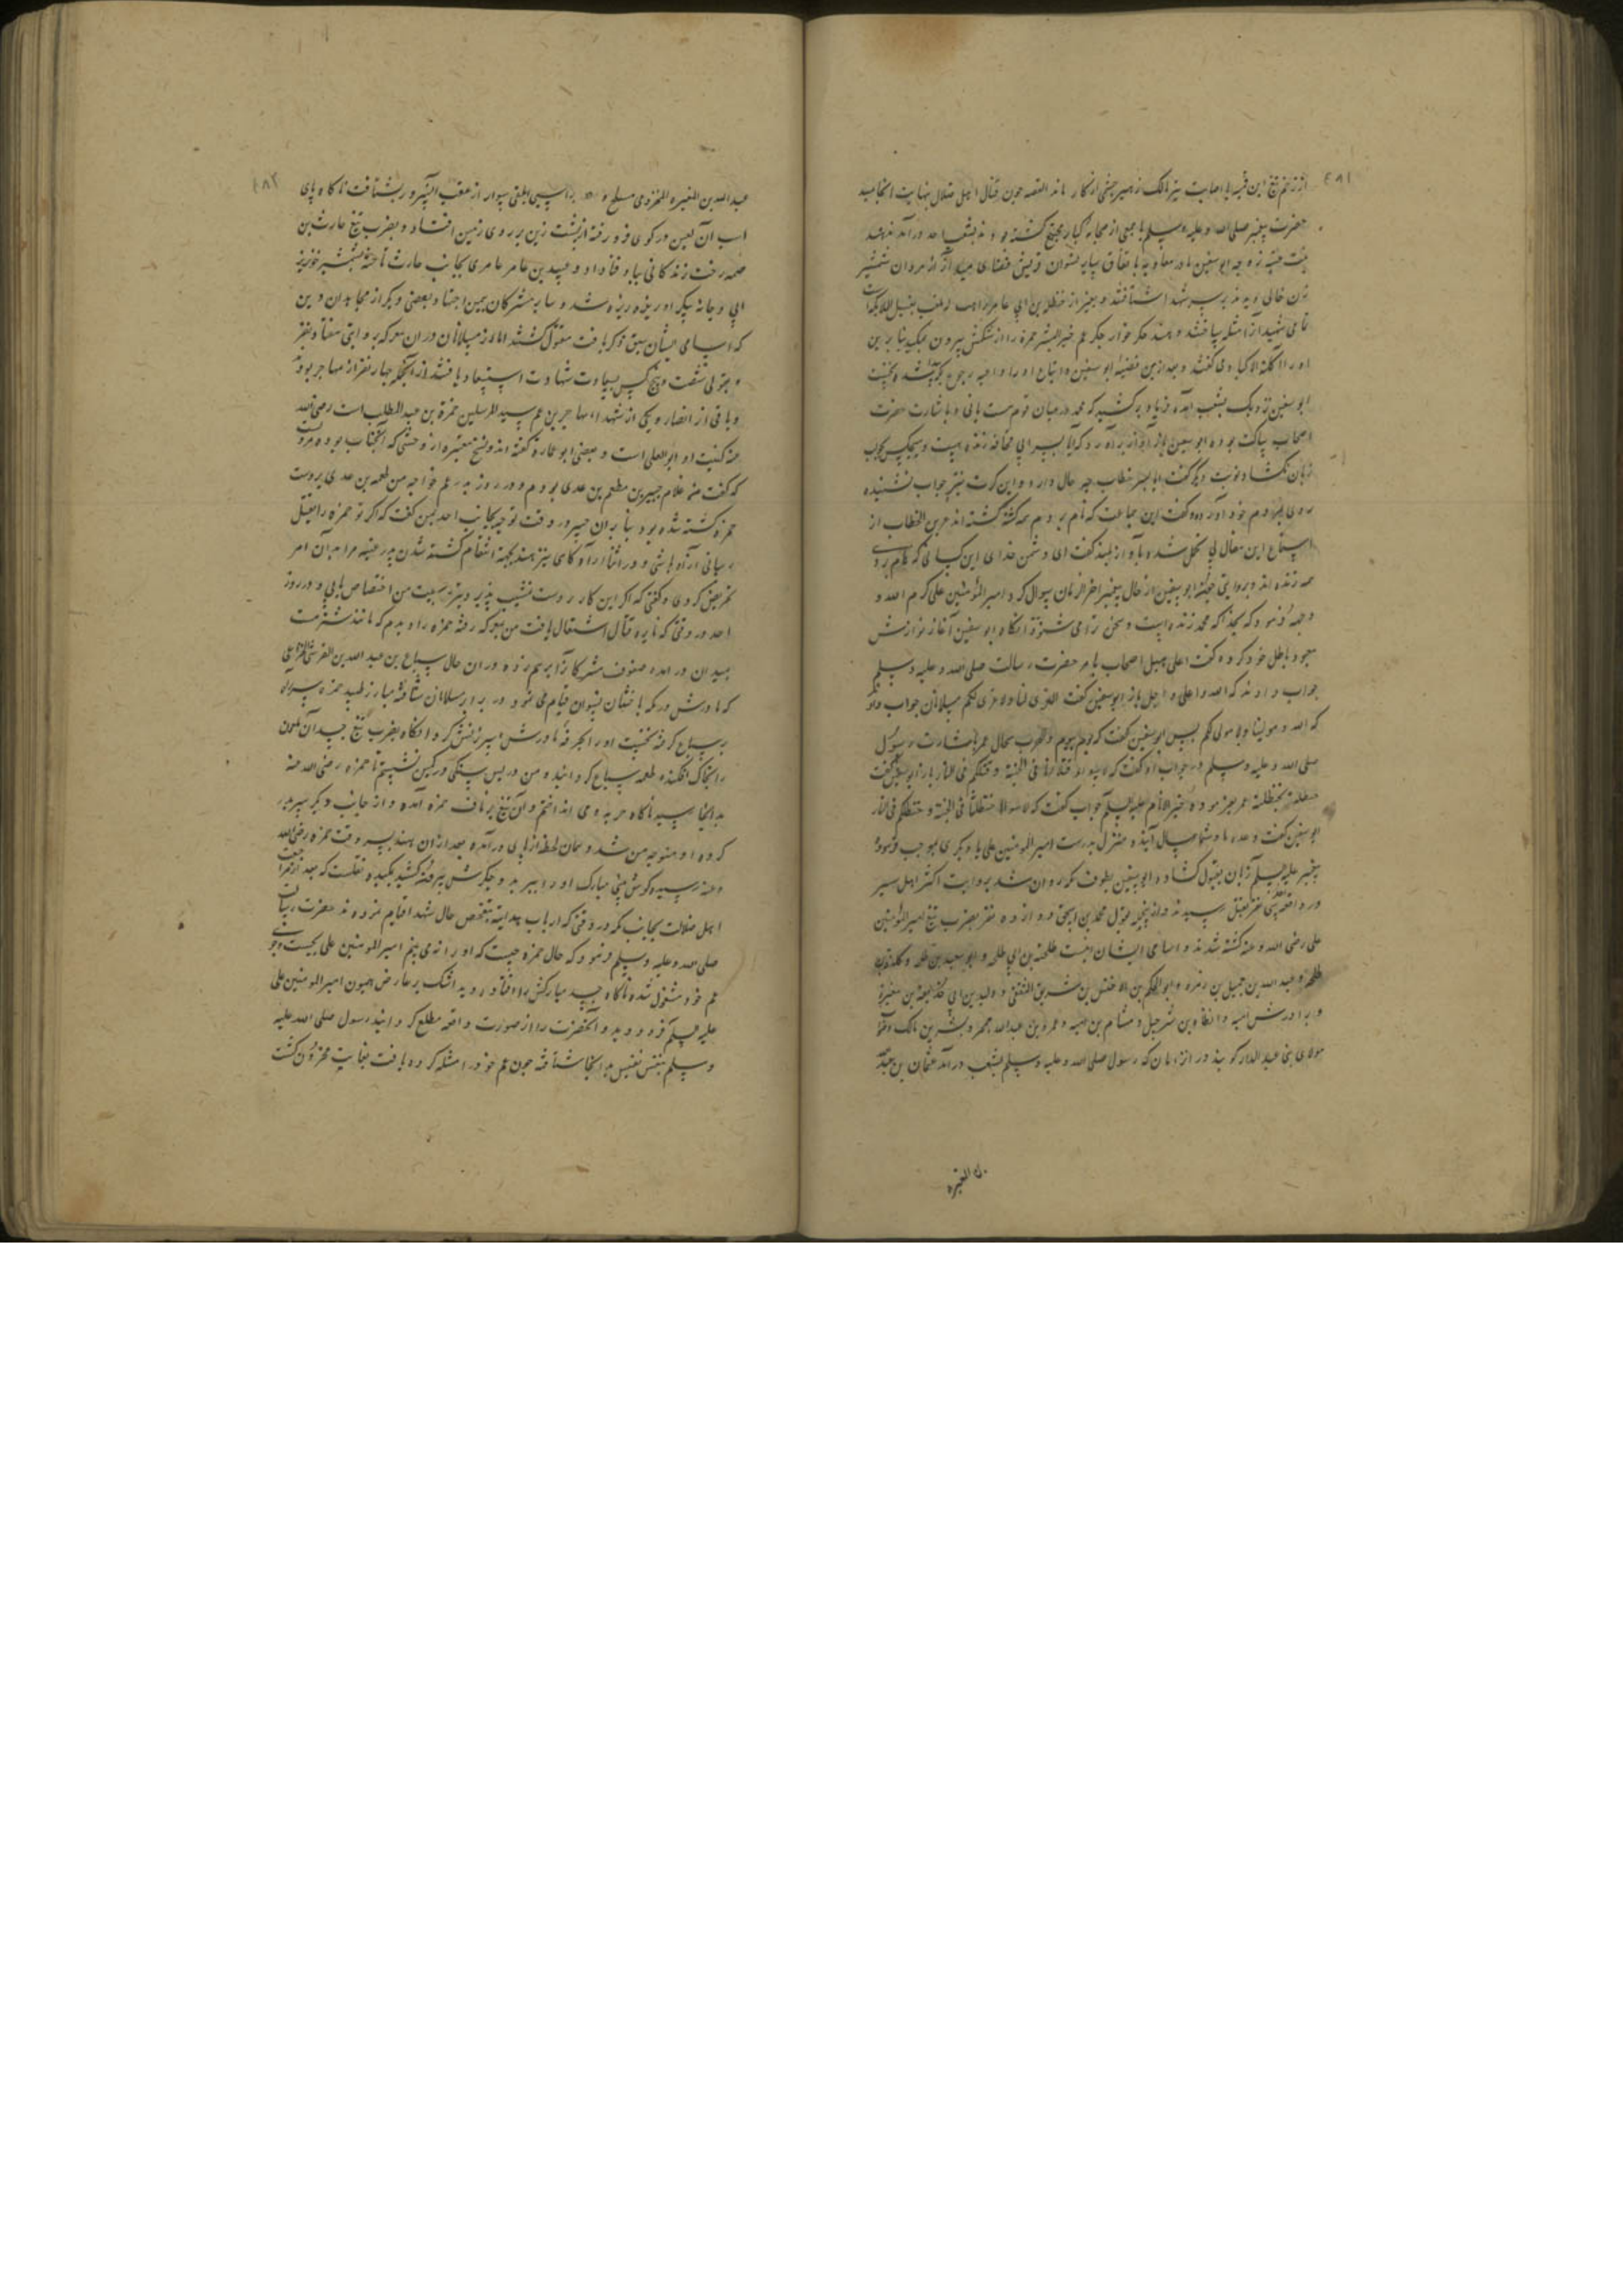 ۴۸۱
از زخم تیغ ابن قمیه یا اصابت تیر مالک زهیر چشمی از کار ماند القصه چون قتال اهل ضلال بنهایت انجامید
حضرت پیغمبر صلی الله علیه وسلم با جمعی از صحابه کبار مجتمع کشته بودند بشعب احد درآمد هند
بنت عتبه زوجه ابوسفین مادر معاویه باتفاق سایر نسوان قریش فضای میدان از مردان شمشیر
زن خالی دیده بر سر شهدا شتافتند و بغیر از حنظله بن ابی عامر راهب
تمامی شهیدان را مثله ساختند و هند جکر خوار جکر عم خیر البشر حمزه را از شکمش بیرون بنا برین
او را آکلة الاکباد می گفتند و بعد ازین قضیه ابوسفین و اتباع او را داعیه رجوع نخست
ابوسفین نزدیک بشعب آمده فریاد بر کشید که محمد در میان قوم هست یا نی و باشارت حضرت
اصحاب ساکت بوده ابوسفین باز آواز برآورد که آیا پسر ابی قحافه زنده هست و هیچکس بجواب
زبان نکشاد نوبت دیکر گفت آیا پسر خطاب چه حال دارد و این کرت نیز جواب نشنیده
روی بمردم خود آورده گفت این جماعت که نام بردم همه کشته کشته اند عمر بن الخطاب از
استماع این مقال بی تحمل شده بآواز بلند گفت ای دشمن خدای این کسانی که نام بردی
همه زنده اند و بروایتی ابوسفین از حال پیغمبر آخر الزمان سوال کرد امیر المؤمنین علی کرم الله
وجهه فرمود که بخدا که محمد زنده است و سخن ترا می شنود آنکاه ابوسفین آغاز نوازش
معبود باطل خود کرده گفت اعلی هبل اصحاب بامر حضرت رسالت صلی الله علیه وسلم
جواب دادند که الله اعلی و اجل باز ابوسفین گفت العزی لنا ولا عزی لکم مسلمانان جواب
که الله مولینا ولا مولی لکم پس ابوسفین گفت که یوم بیوم والحرب سجال عمر باشارت رسول
صلی الله علیه وسلم در جواب او گفت که لا سواء قتلانا فی الجنة وقتلاکم فی النار باز ابوسفین گفت
حنظلة بحنظلة عمر خیر الانام علیه السلام جواب گفت که لا سواء حنظلتنا فی الجنة وحنظلتکم فی النار
ابوسفین گفت وعده ما و شما سال آینده منزل بدرست امیر المومنین علی یا دیکری بموجب فرموده
پیغمبر علیه السلام زبان بقبول کشاد و ابوسفین بطرف مکه روان شد بروایت اکثر اهل سیر
در واقعه نفر بقتل رسیدند و از جمله بقول محمد بن اسحق دوازده نفر بضرب تیغ امیر المؤمنین
علی رضی الله عنه کشته شدند و اسامی ایشان اینست طلحة بن ابی طلحه و ابو سعید بن طلحه و
طلحه و عبد الله بن جمیل بن زهره و ابو الحکم بن الاخنس بن شریق الثقفی و ولید بن ابی حذیفة بن مغیرة
و برادرش امیه و ارطاة بن شرحبیل و هشام بن امیه و عمرو بن عبد الله جمحی و بشر بن مالک و
مولای بنی عبد الدار کویند در آن زمان که رسول صلی الله علیه وسلم بشعب درآمد عثمان بن عبد الله
بن المغیره
۴۸۲
عبد الله بن المغیره المخزومی مسلح بر اسبی ابلقی سوار از عقب آن سرور بشتافت ناکاه پای
اسب آن لعین در کوی فرو رفته از پشت زین بر روی زمین افتاد و بضرب تیغ حارث بن
صمه رخت زندکانی بباد فنا داد و عبید بن عامر عامری بجانب حارث تاخته بشمشیر خونریز
ابی دجانه پیکر او ریزه ریزه شد و سایر مشرکان بیمن اجتهاد بعضی دیکر از مجاهدان دین
که اسامی ایشان سبق ذکر یافت مقتول کشتند اما از مسلمانان در آن معرکه بروایتی هفتاد نفر
و بقولی شصت و پنج کس بسعادت شهادت استسعاد یافتند از آنجمله چهار نفر از مهاجر بودند
و باقی از انصار و یکی از شهداء مهاجرین عم سید المرسلین حمزة بن عبد المطلب است رضی الله
عنه کنیت او ابو یعلی است و بعضی ابو عماره گفته اند و در نسخ معتبره از وحشی که آنجناب بوده مرویست
که گفت من غلام جبیر بن مطعم بن عدی بودم و در روز بدر عم خواجه من طعیمه بن عدی بر دست
حمزه کشته شده بود بنا بر آن جبیر در وقت توجه بجانب احد بمن گفت که اکر تو حمزه را بقتل
رسانی آزاد باشی و در اثناء راه کاهی نیز هند بجهة انتقام کشته شدن پدرش عتبه مرا بدان امر
تحریض کردی و گفتی که اکر این کار از دست تمشیت پذیرد نیز بسیت من اختصاص یابی و در روز
احد در وقتی که نایره قتال اشتعال یافت من بمعرکه رفته حمزه را دیدم که مانند شتر مست
بمیدان درآمده صفوف مشرکان را بر هم زده در آن حال سباع بن عبد الله بن الخزاعی
که مادرش در مکه بختان نسوان قیام می نمود در برابر مسلمانان شتافته مبارز طلبید حمزه
بر سباع کرفته نخست او را بحرفه مادرش سرزنش کرد آنکاه بضرب تیغ جسد آن ملعون
را بخاک افکنده طعمه سباع کردانید و من در پس سنکی در کمین نشستم تا حمزه رضی الله عنه
بدانجا رسید ناکاه حربه بوی انداختم و آن تیغ بر ناف حمزه آمده و از جانب دیکر سر بدر
کرده او متوجه من شد و همان لحظه از پای درآمد بعد از آن هند بسر وقت حمزه رضی الله
عنه رسیده کوش و بینی مبارک او را ببرید و جکرش بیرون کشید بمکید نقلست که بعد از مراجعت
اهل ضلالت بجانب مکه در وقتی که ارباب هدایت بتفحص حال شهدا قیام نمودند حضرت رسالت
صلی الله علیه وسلم فرمود که حال حمزه چیست که او را نمی بینم امیر المومنین علی بجست و جوی
عم خود مشغول شده ناکاه جسد مبارکش را افتاده دید اشک بر عارض همیون امیر المومنین علی
علیه السلام فرو دوید و آنحضرت را از صورت واقعه مطلع کردانید رسول صلی الله علیه
وسلم بنفس نفیس بدانجا شتافته چون عم خود را مثله کرده یافت بغایت محزون کشت